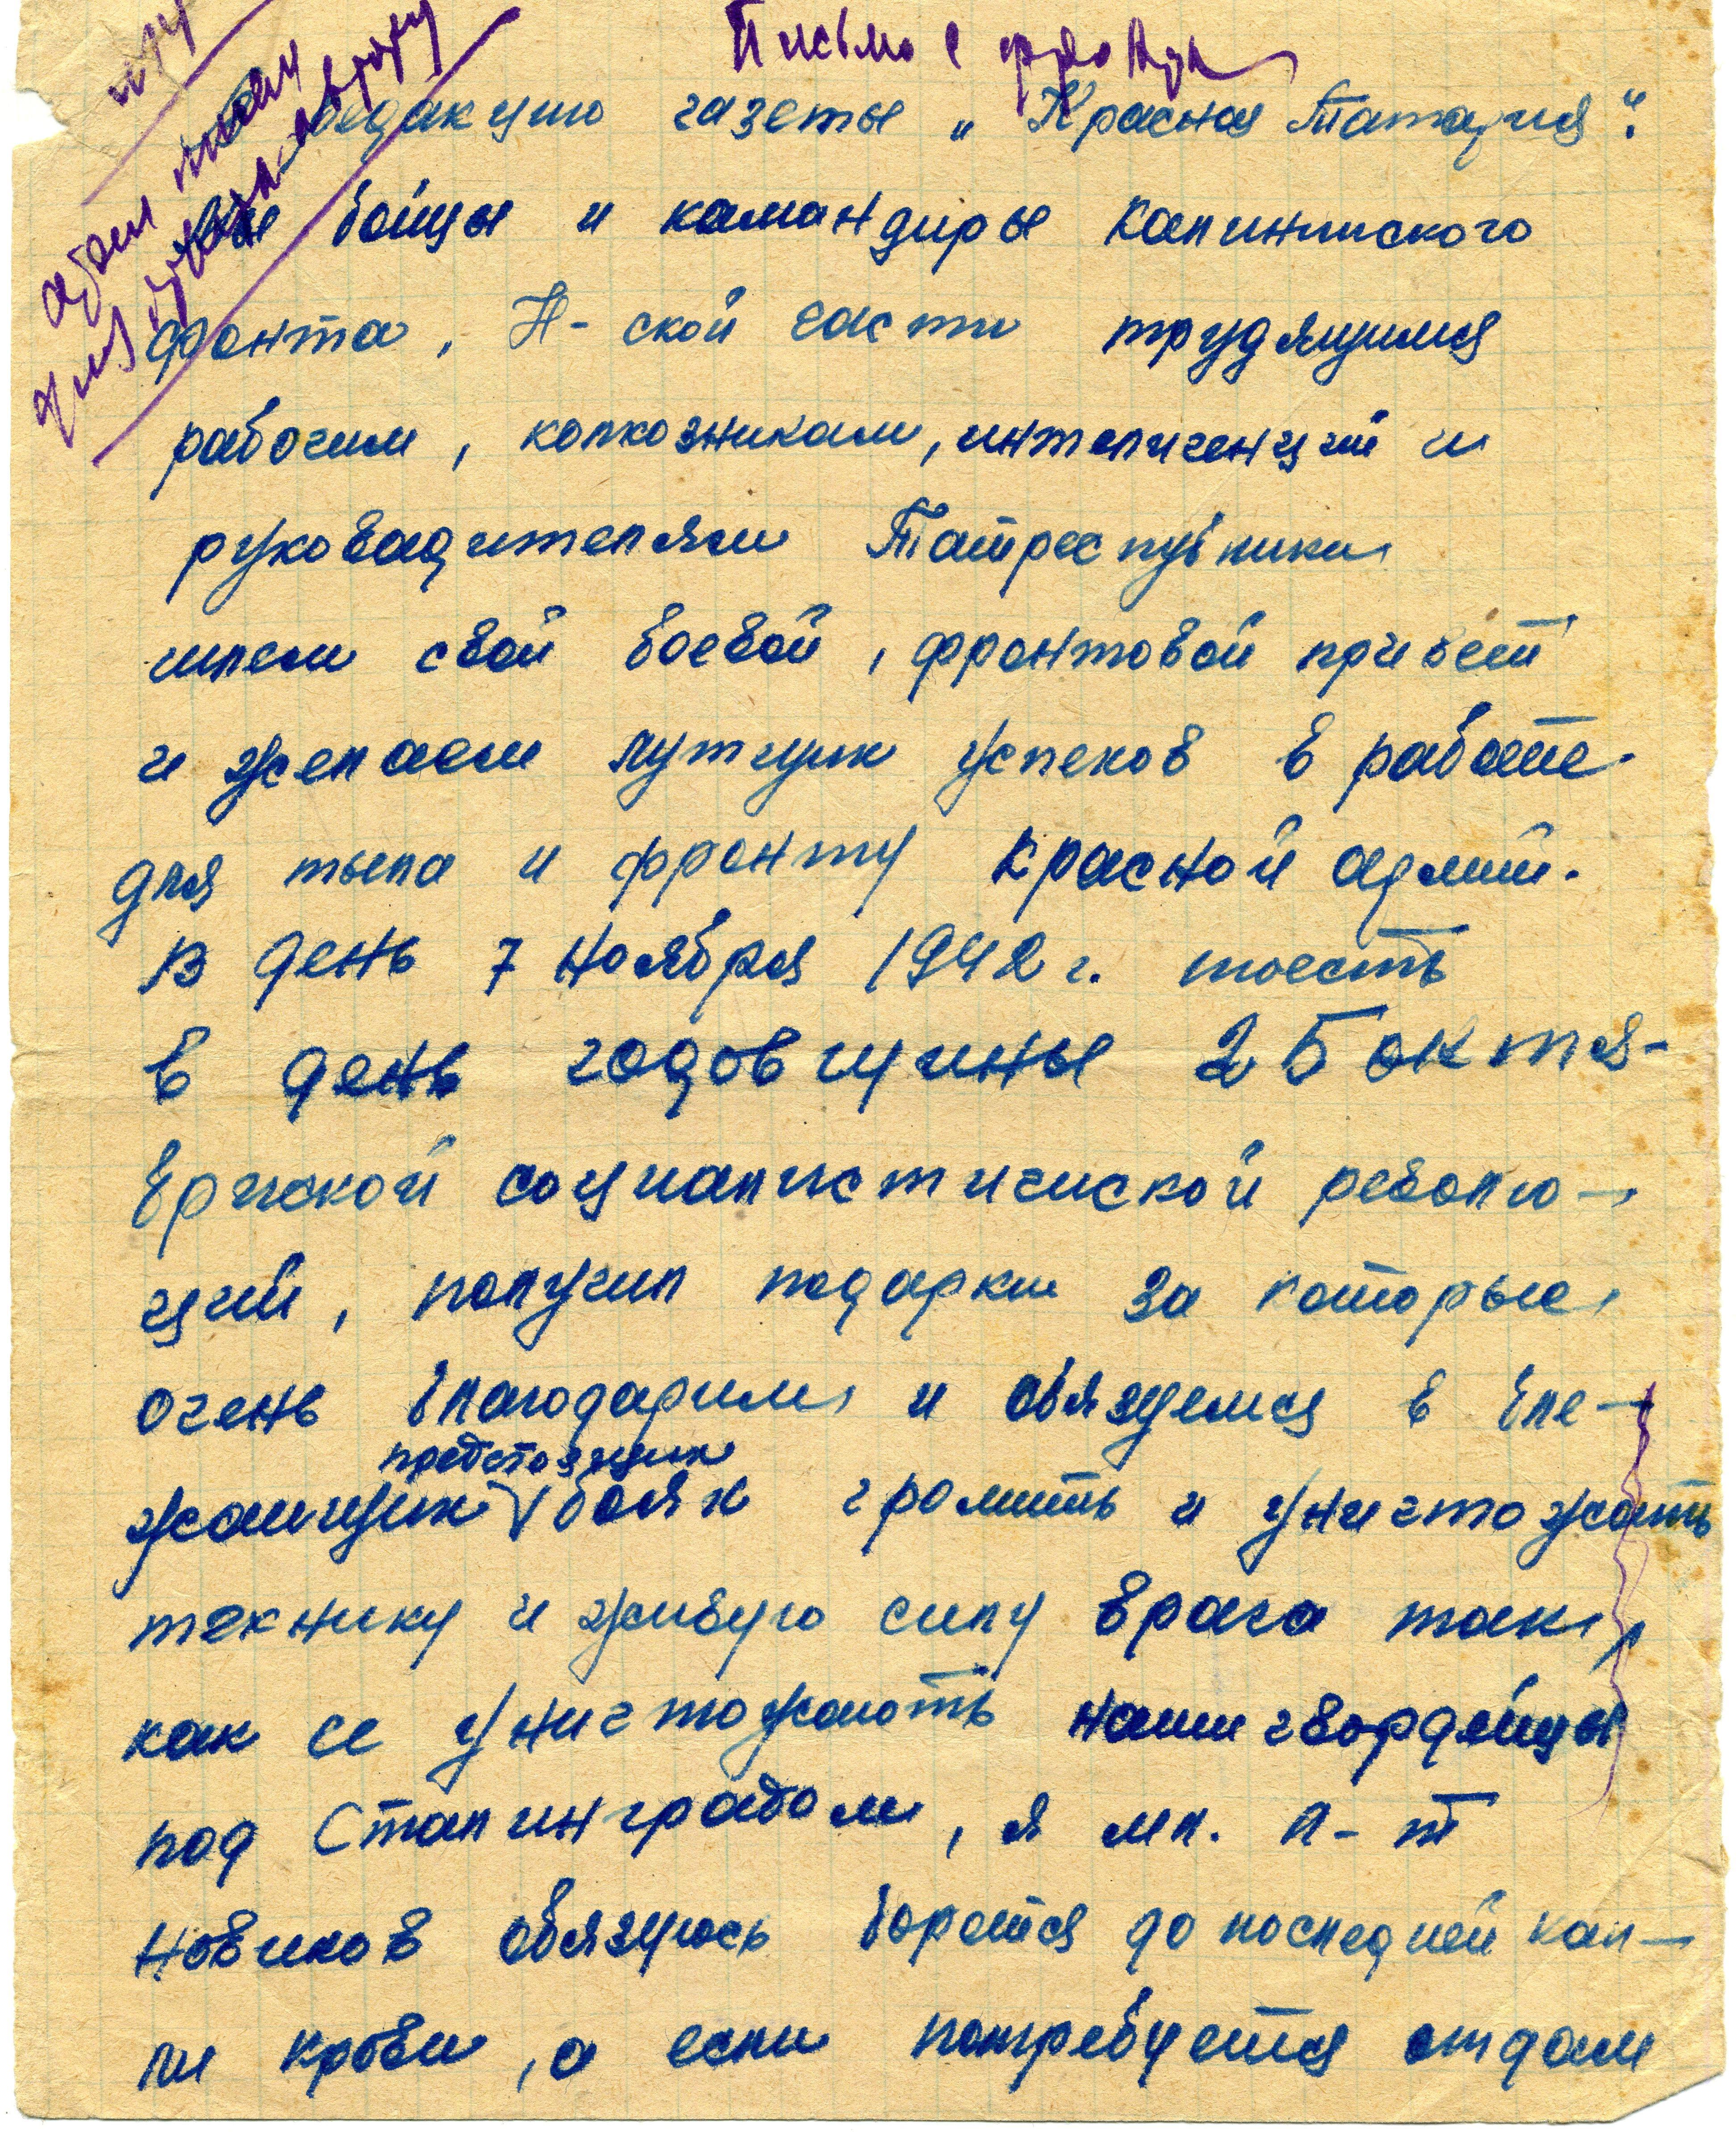 Письмо с фронта
редакцию газеты „Красная Татария“.
Мы бойцы и командиры Калининского
фронта, Н-ской части трудящимся
рабочим, колхозникам, интелигенций и
руководителям Татреспублики
шлем свой боевой, фронтовой привет
и желаем лутших успехов в работе
для тыла и фронту Красной армий.
В день 7 ноября 1942 г. тоесть
в день годовщины 25 октя-
брской социалистичиской револю-
ций, получил подарки за которые
очень благодарим и обязуемся в бли-
жайщих предстоящих боях громить и уничтожать
технику и живую силу врага так,
как ее уничтожають наши гвордейцы
под Сталинградом, я мл. л-т
Новиков обязуюсь боротся до последней кап-
ли крови, а если потребуется отдам